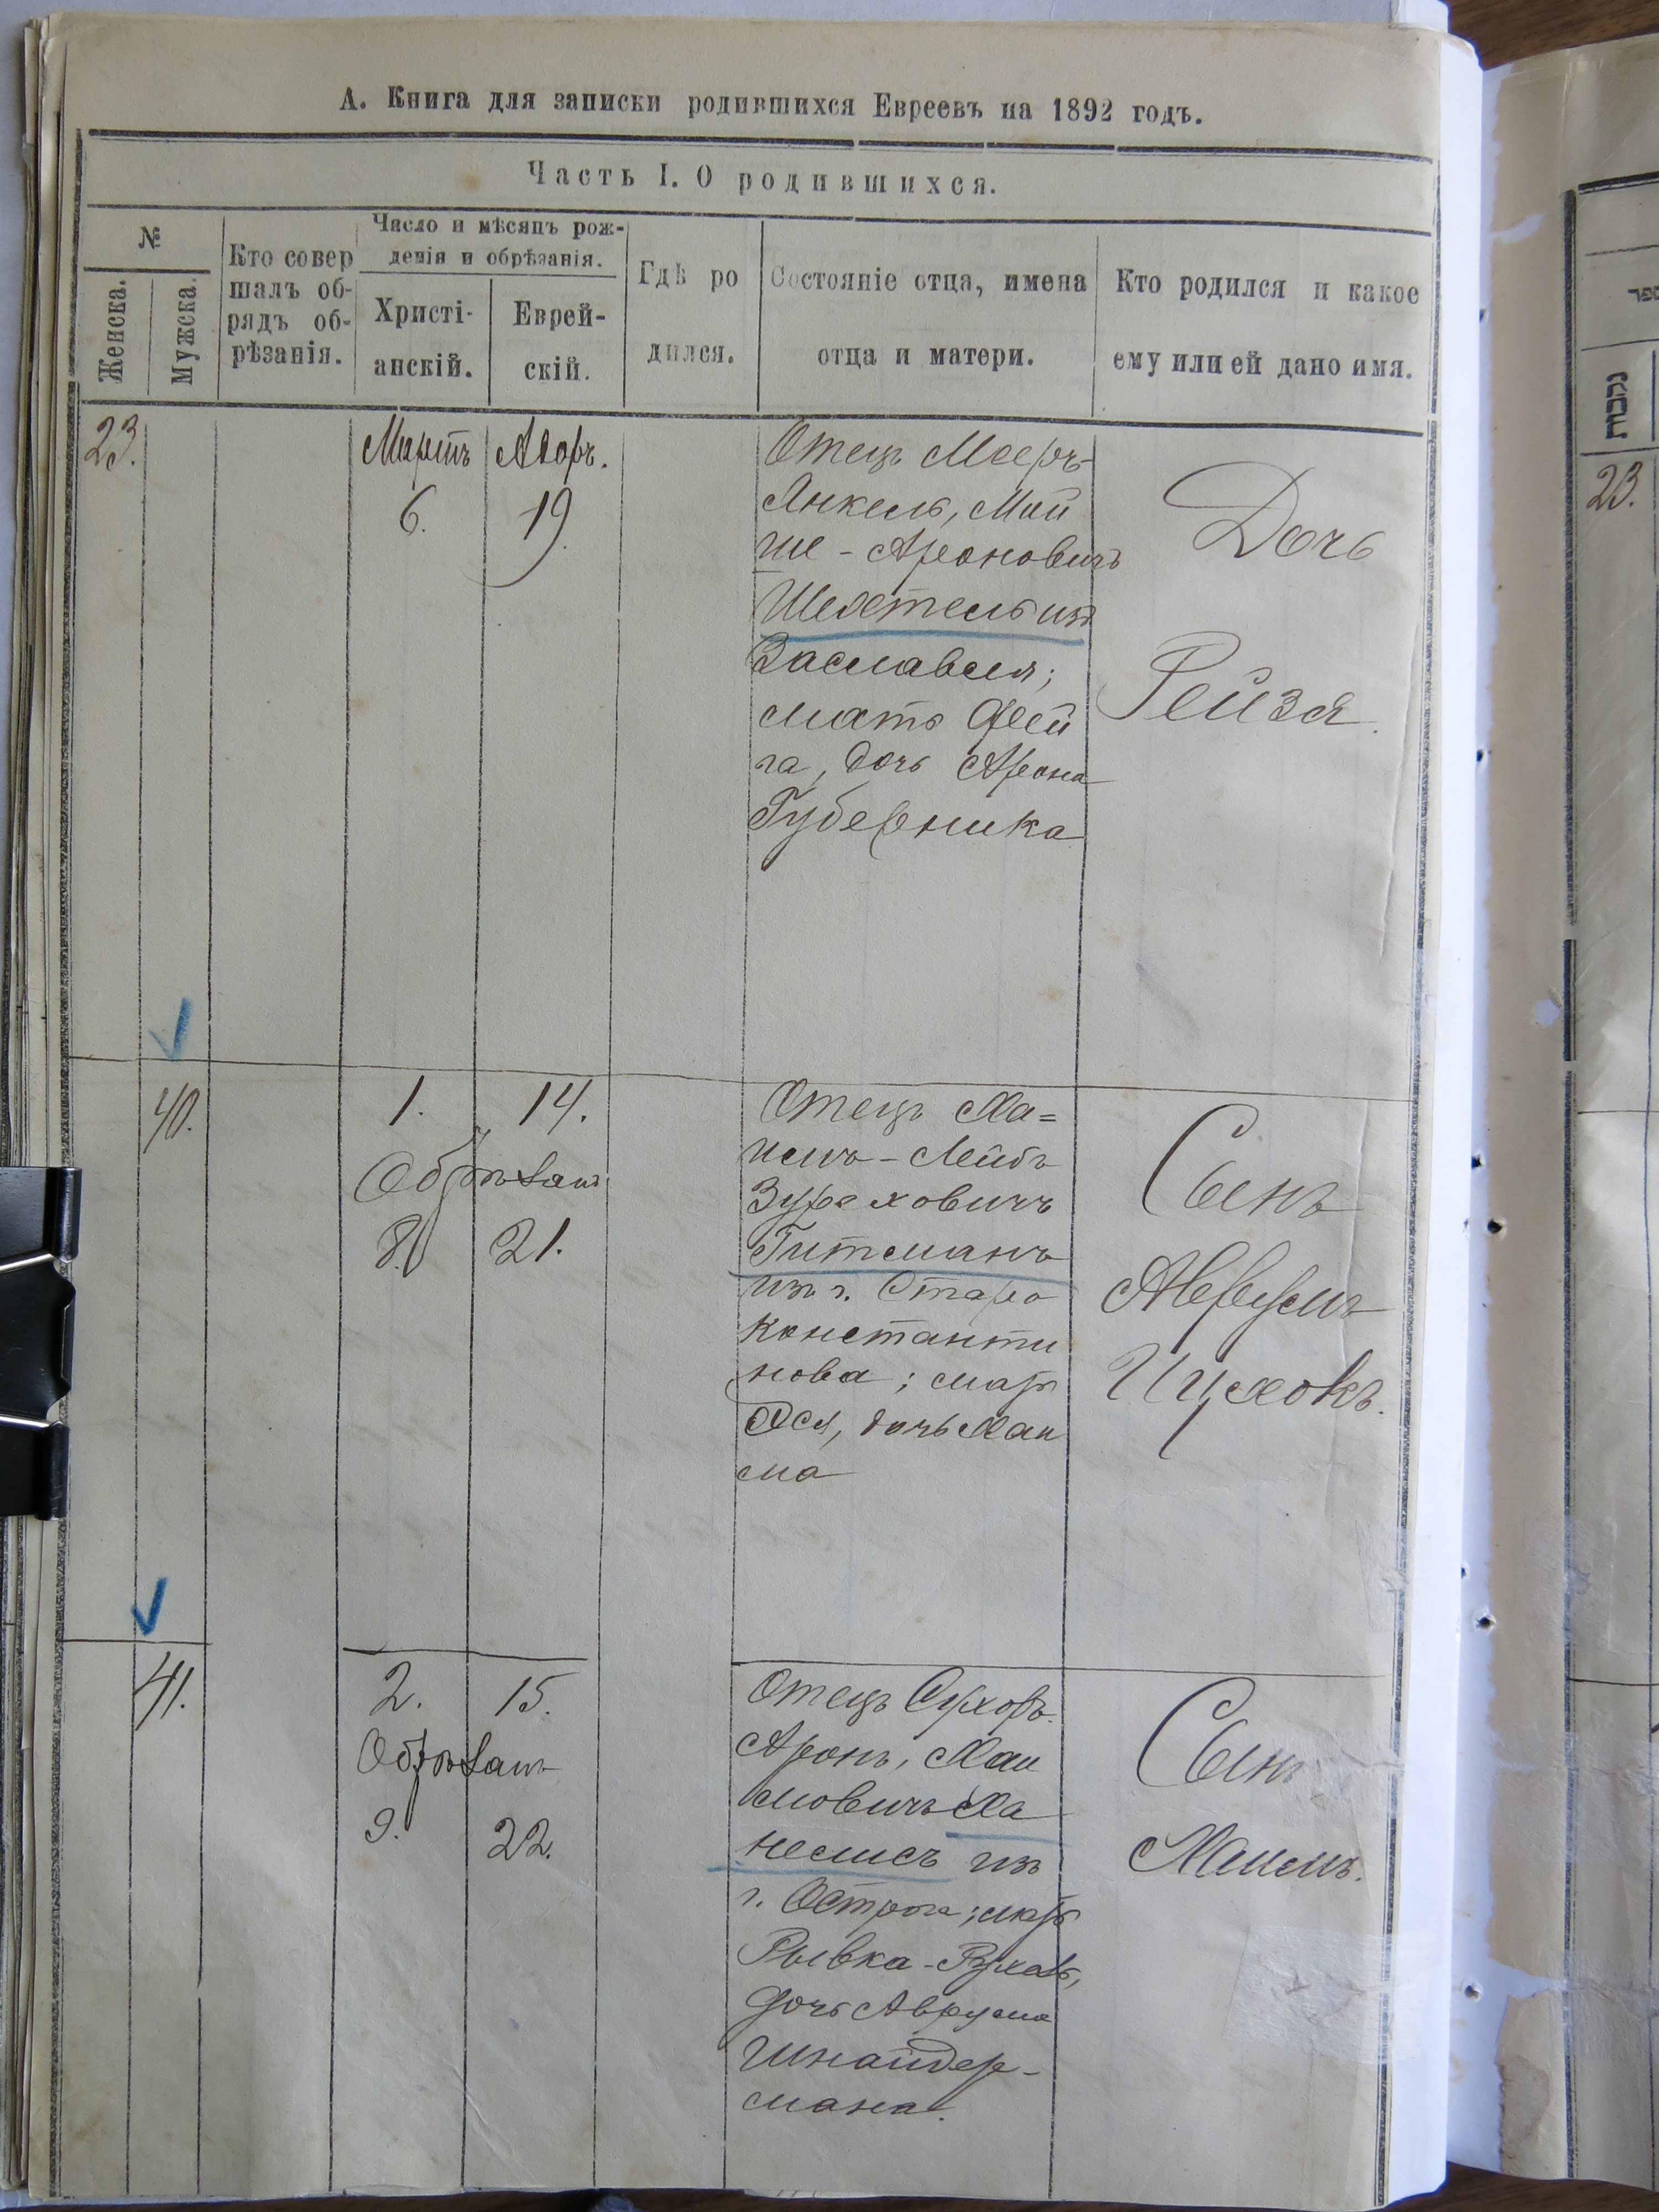 А. Книга для записки родившихся Евреевъ на 1892 годъ.
Часть I. О родившихся.
№
Женска.
Мужска.
Кто совер
шалъ об-
рядъ об-
рѣзанія.
Число и мѣсяцъ рож-
денія и обрѣзанія.
Христі-
анскій.
Еврей-
скій.
Гдѣ ро
дился.
Состояніе отца, имена
отца и матери.
Кто родился и какое
ему или ей дано имя.
23.
Мартъ
6.
Адоръ.
19.
Отецъ Мееръ-
Янкель, Мой
ше-Ароновичъ
Шехтель изъ
Заславля;
мать Фей
га, дочь Арона
Губерника
Дочь
Рейзя.
40.
1.
14.
Обрѣзанъ
8.
21.
Отецъ Ха=
имъ-Лейбъ
Зуреховичъ
Гитманъ
изъ г. Старо
константи
нова; мать
Хся, дочь Хаи
ма
Сынъ
Аврумъ
Ицхокъ.
41.
2.
15.
Обрѣзанъ
9.
22.
Отецъ
Аронъ, Хаи
мовичъ Ха
немисъ изъ
г. Острога; мать
Рывка-Рухль,
дочь Аврума
Шнайдер-
мана.
Сынъ
Хаимъ.
נקבות
23.